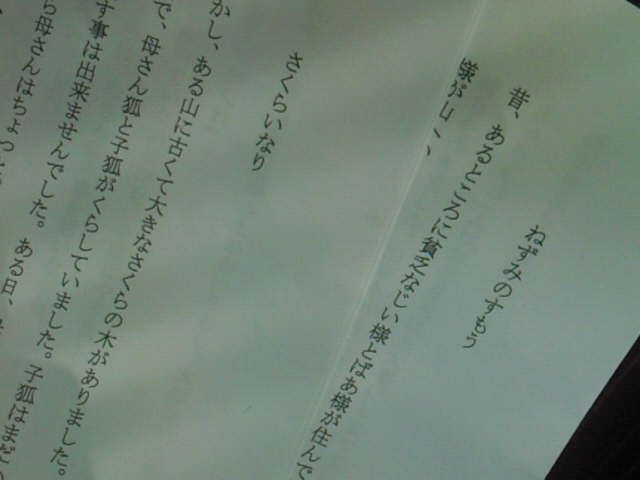 ねずみのすもう
昔、あるところに貧乏なじい様とばあ様が住んで
様が
さくらいなり
かし、ある山に古くて大きなさくらの木がありました。
で、母さん狐と子狐がくらしていました。子狐はまだ
す事は出来ませんでした。ある日、
ら母さんはちょっと